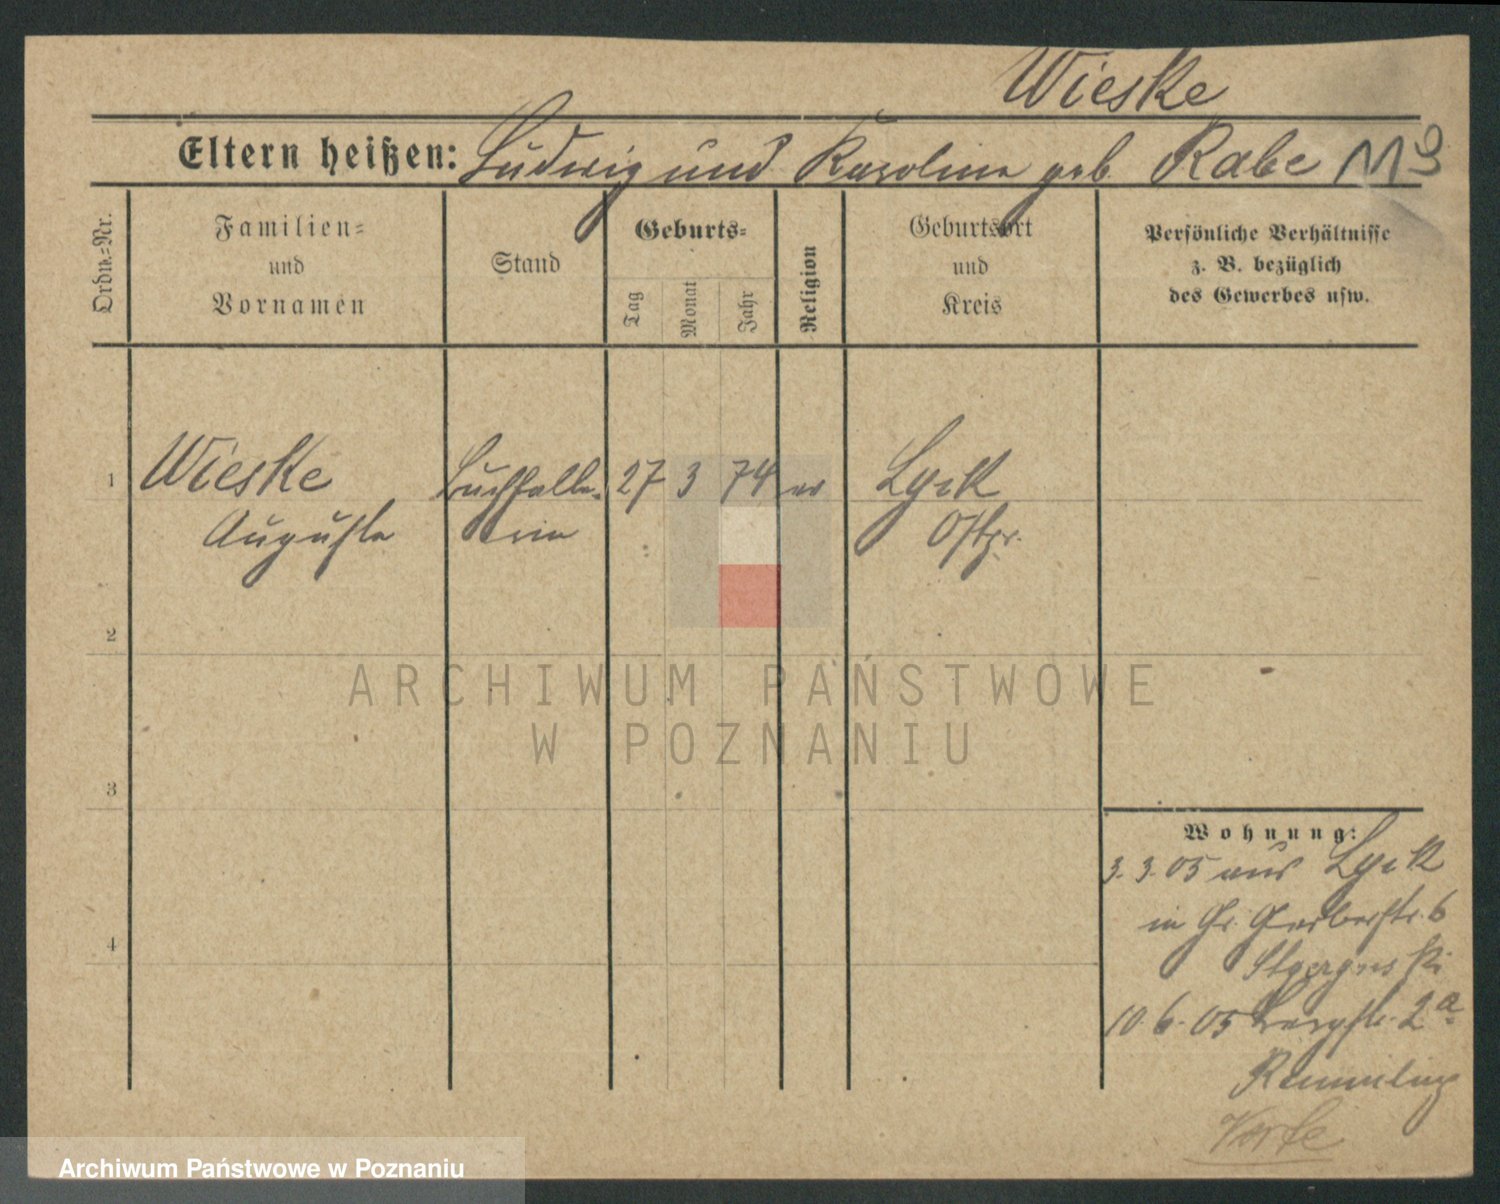 Wieske
Eltern heißen: Ludwig und Karoline geb Rabe
Ordn.-Nr.
Familien-
und
Vornamen
Stand
Geburts-
Tag
Monat
Jahr
Religion
Geburtsort
und
Kreis
Persönliche Verhältnisse
z. B. bezüglich
des Gewerbes usw.
1 Wieske Buchhalte- 27 3 74 ev Lyck
Auguste rin Ostpr.
2
3
4
Wohnung:
3.3.05 aus Lyck
in Gr. Gerberstr. 6
10.6.05 Bergstr. 2a
ARCHIWUM PAŃSTWOWE
W POZNANIU
Archiwum Państwowe w Poznaniu